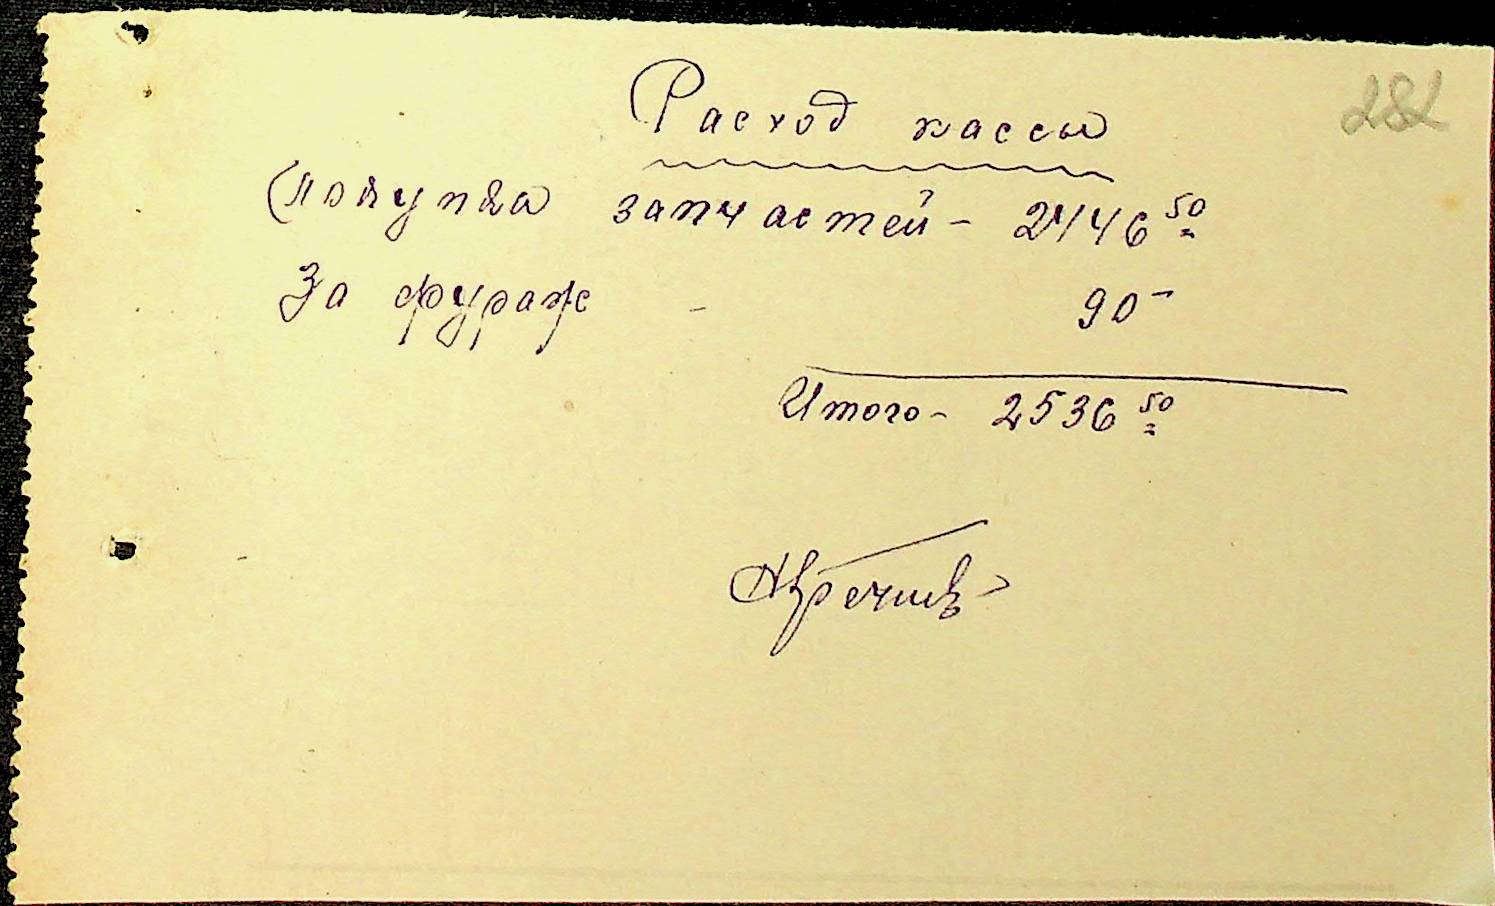 282
Расход кассы
Покупка запчастей - 2446 50
За фураж - 90-
Итого - 2536 50